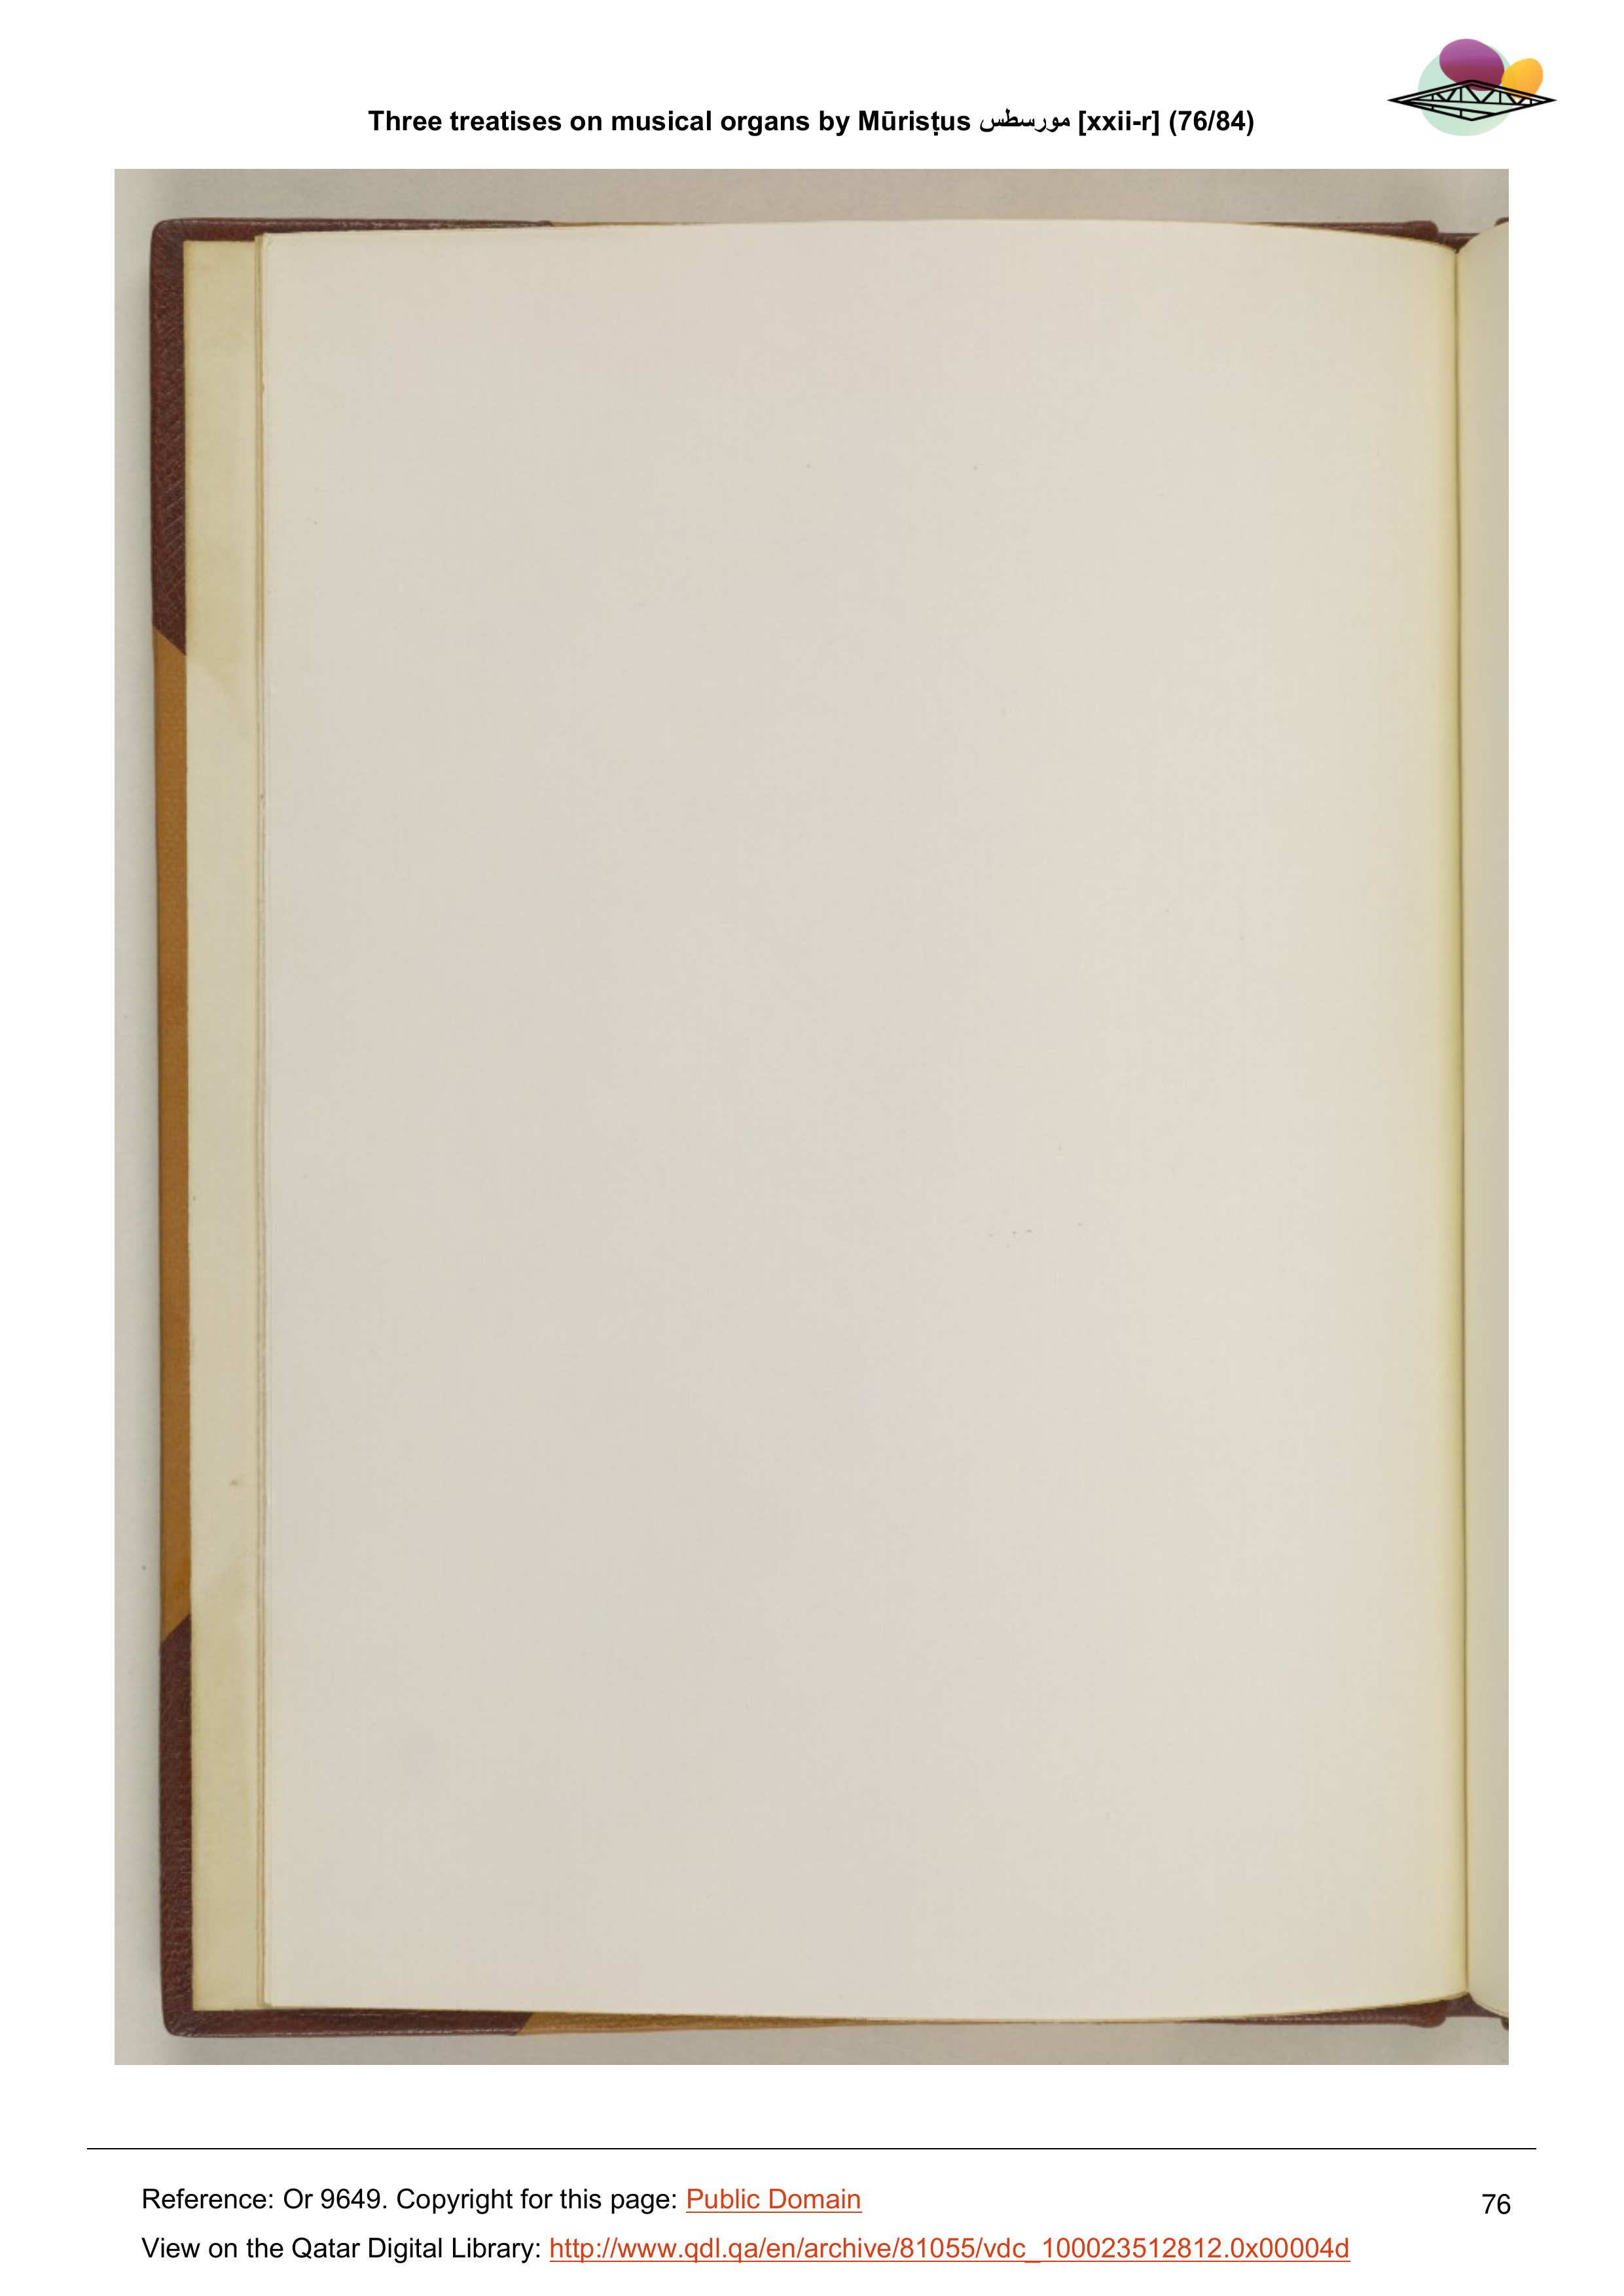 Three treatises on musical organs by Mūrisṭus مورسطس [xxii-r] (76/84)
Reference: Or 9649. Copyright for this page: Public Domain
76
View on the Qatar Digital Library: http://www.qdl.qa/en/archive/81055/vdc_100023512812.0x00004d